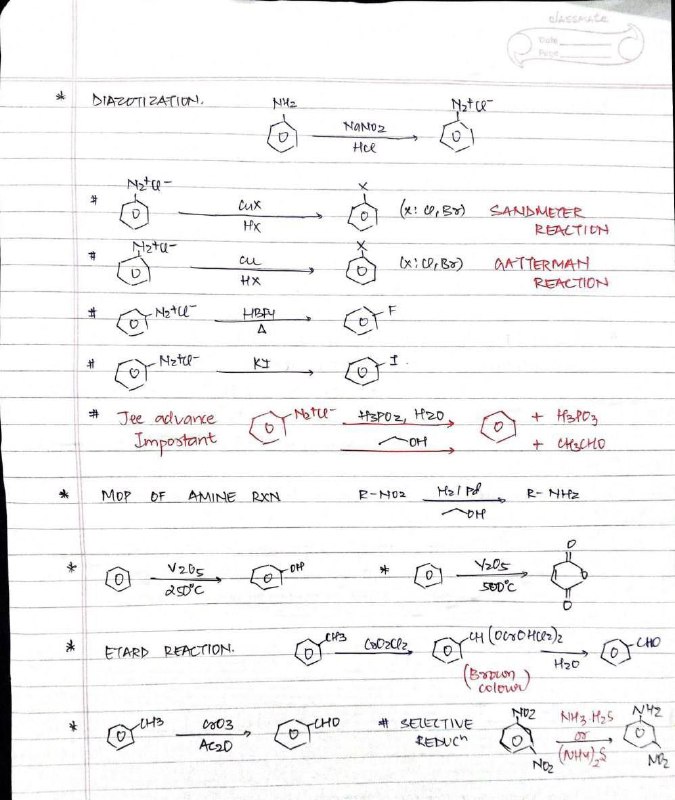 classmate
Date
Page
* DIAZOTIZATION. NH2 NaNO2 HCl N2+Cl-
# N2+Cl- CuX HX X (X: Cl, Br) SANDMEYER REACTION
# N2+Cl- Cu HX X (X: Cl, Br) GATTERMAN REACTION
# N2+Cl- HBF4 Δ F
# N2+Cl- KI I.
# Jee advance Important N2+Cl- H3PO2, H2O + H3PO3
OH + CH3CHO
* MOP OF AMINE RXN R-NO2 H2/Pd OH R-NH2
* V2O5 250°C OH * V2O5 500°C O O O
* ETARD REACTION. CH3 CrO2Cl2 CH(OCrOHCl2)2 H2O CHO
(Brown colour)
* CH3 CrO3 AC2O CHO # SELECTIVE REDUCn NO2 NO2 NH3.H2S or (NH4)2S NH2 NO2